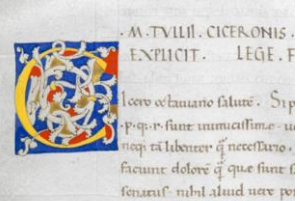 . M. TVLLII. CICERONIS.
EXPLICIT. LEGE. F
Icero octauiano salutē. Si p
.p.q.r. sunt inimicissimæ. u
neqȝ tā libenter q̃ necessario.
faciunt dolorē q̃ quæ sunt s
senatus. nihil aliud uere por